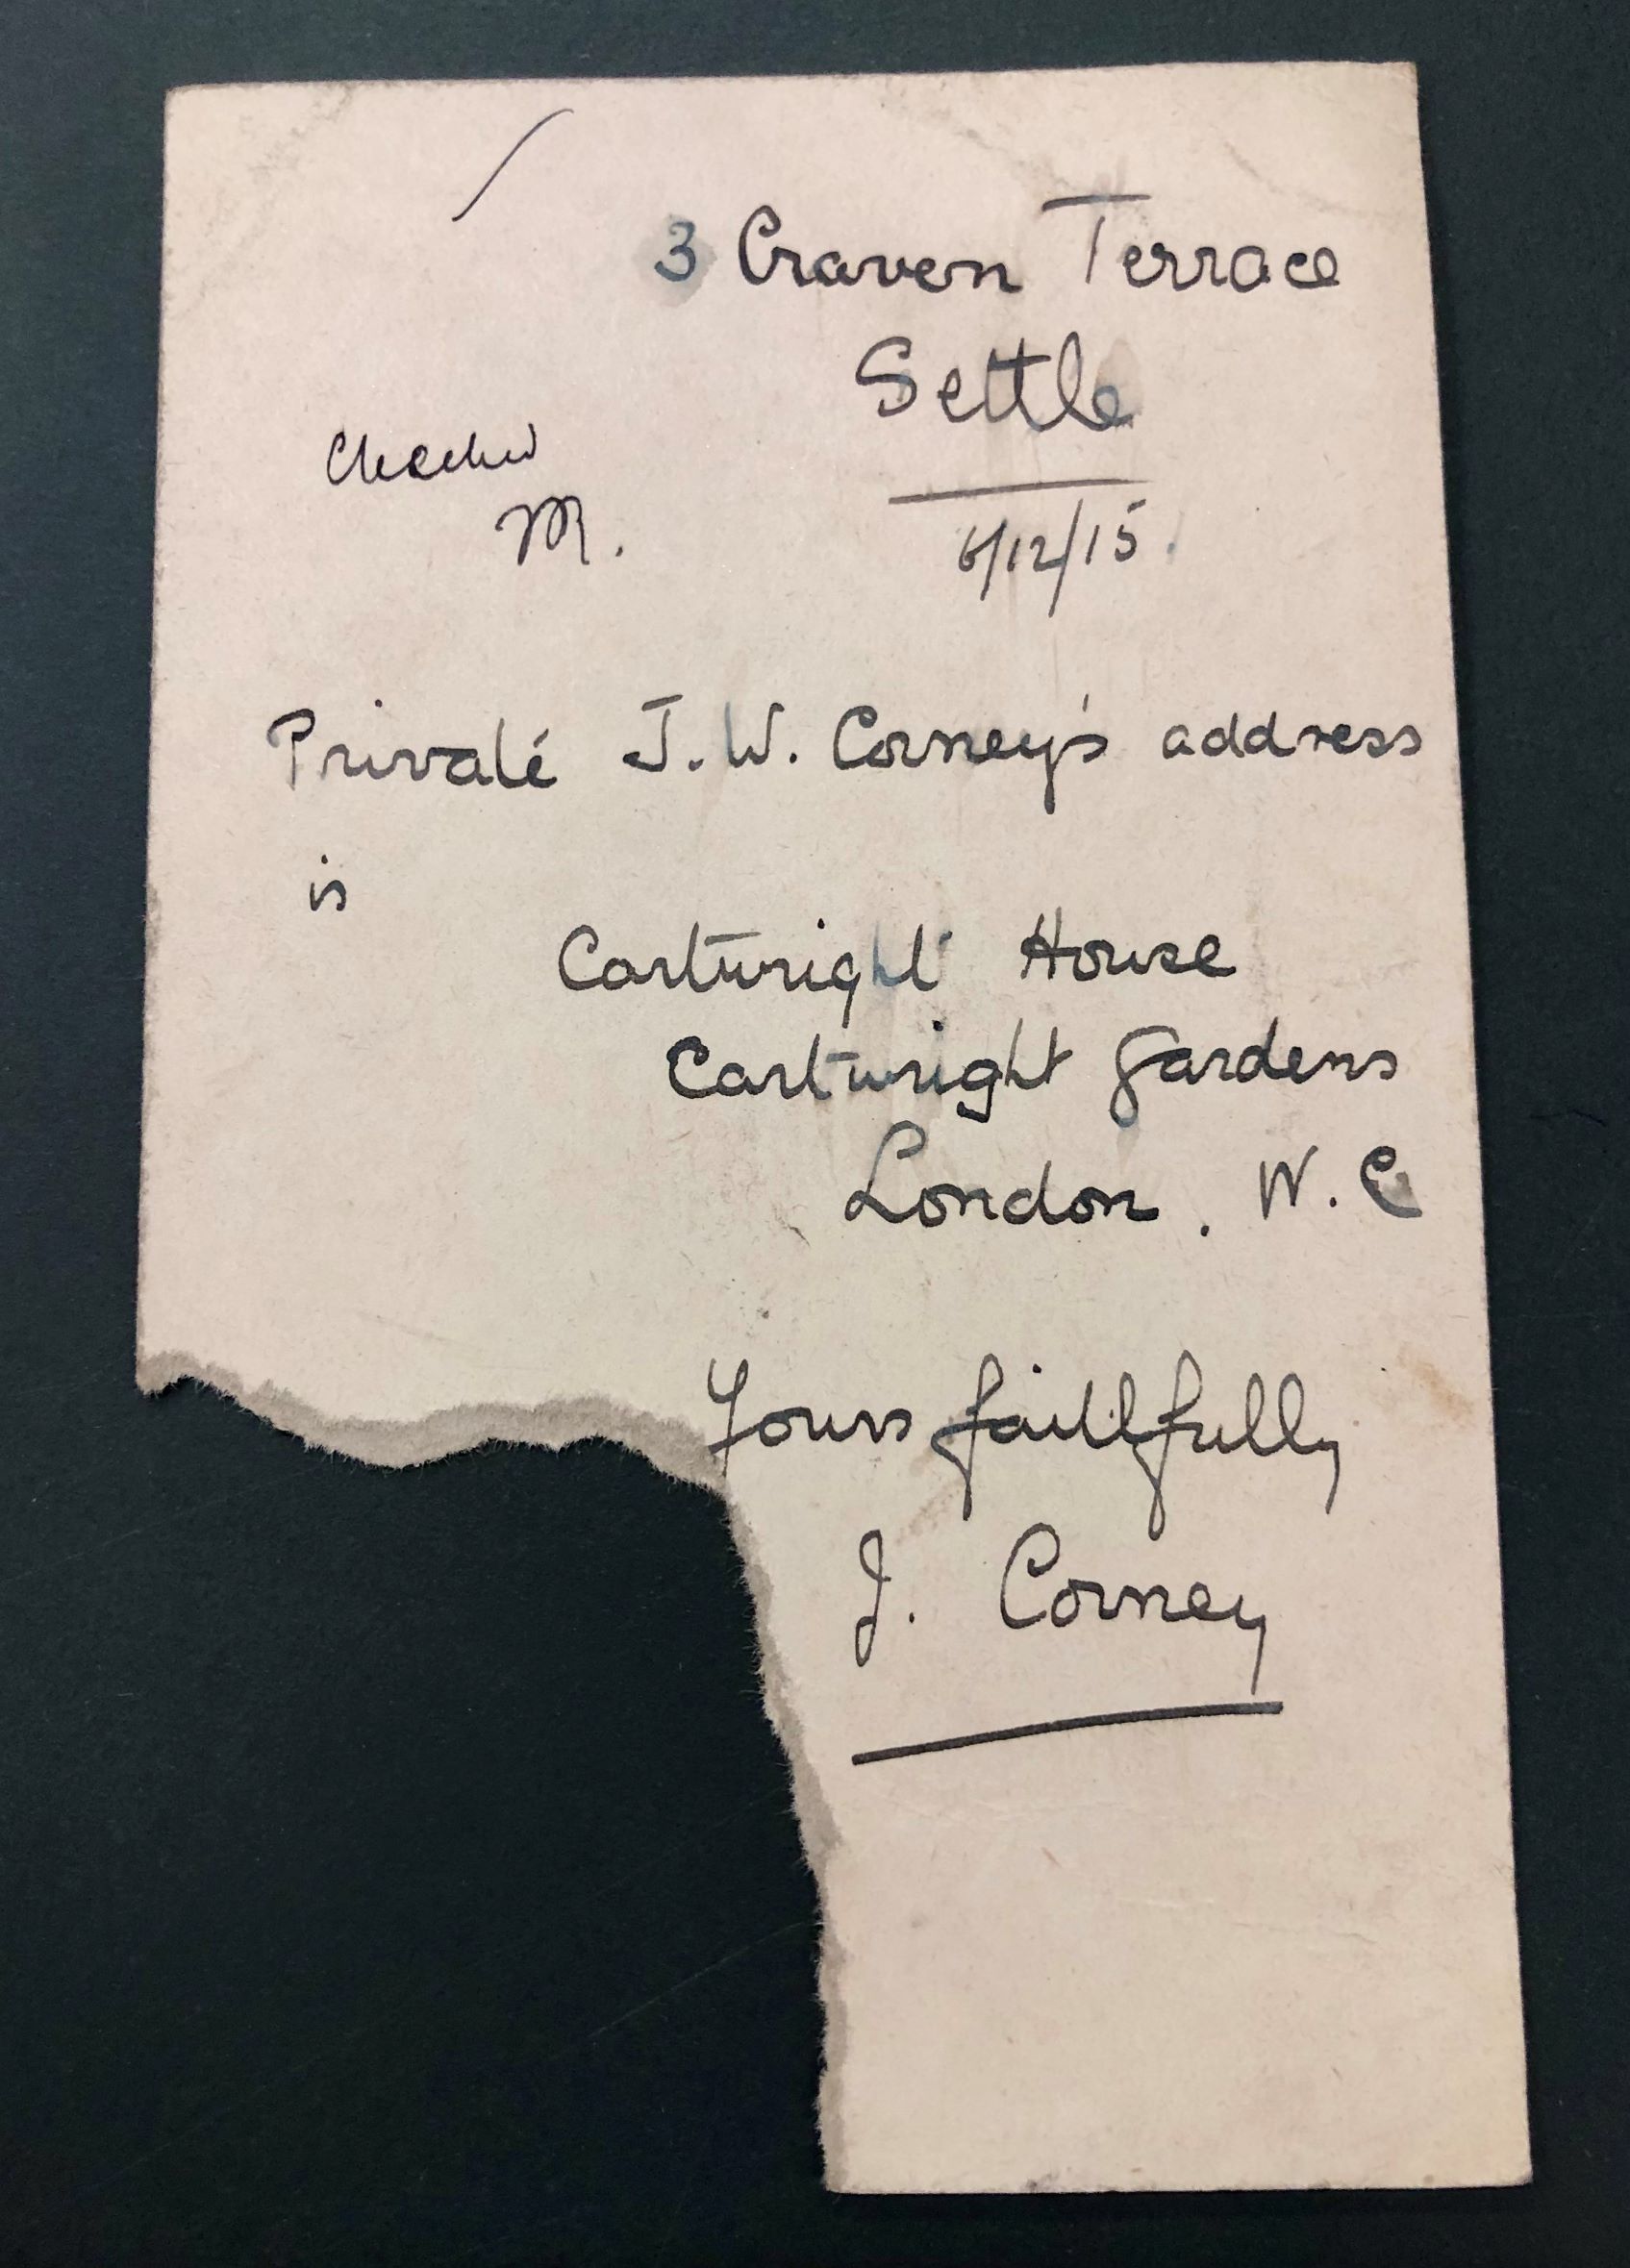 3 Craven Terrace
Settle
Checked
M.
6/12/15.
Private J. W. Corney's address
is
Cartwright House
Cartwright Gardens
London. W. C
Yours faithfully
J. Corney